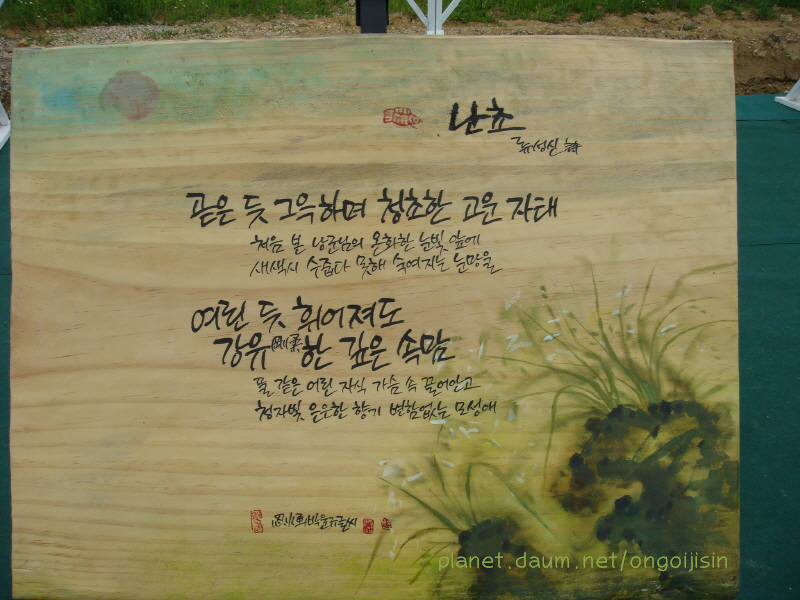 난초
류성신 詩
곧은 듯 그윽하며 청초한 고운 자태
처음 본 낭군님의 온화한 눈빛 앞에
새색시 수줍다 못해 숙여지는 눈망울
여린 듯 휘어져도
강유剛柔한 깊은 속맘
풀 같은 어린 자식 가슴 속 끌어안고
청자빛 은은한 향기 변함없는 모성애
planet.daum.net/ongoijisin